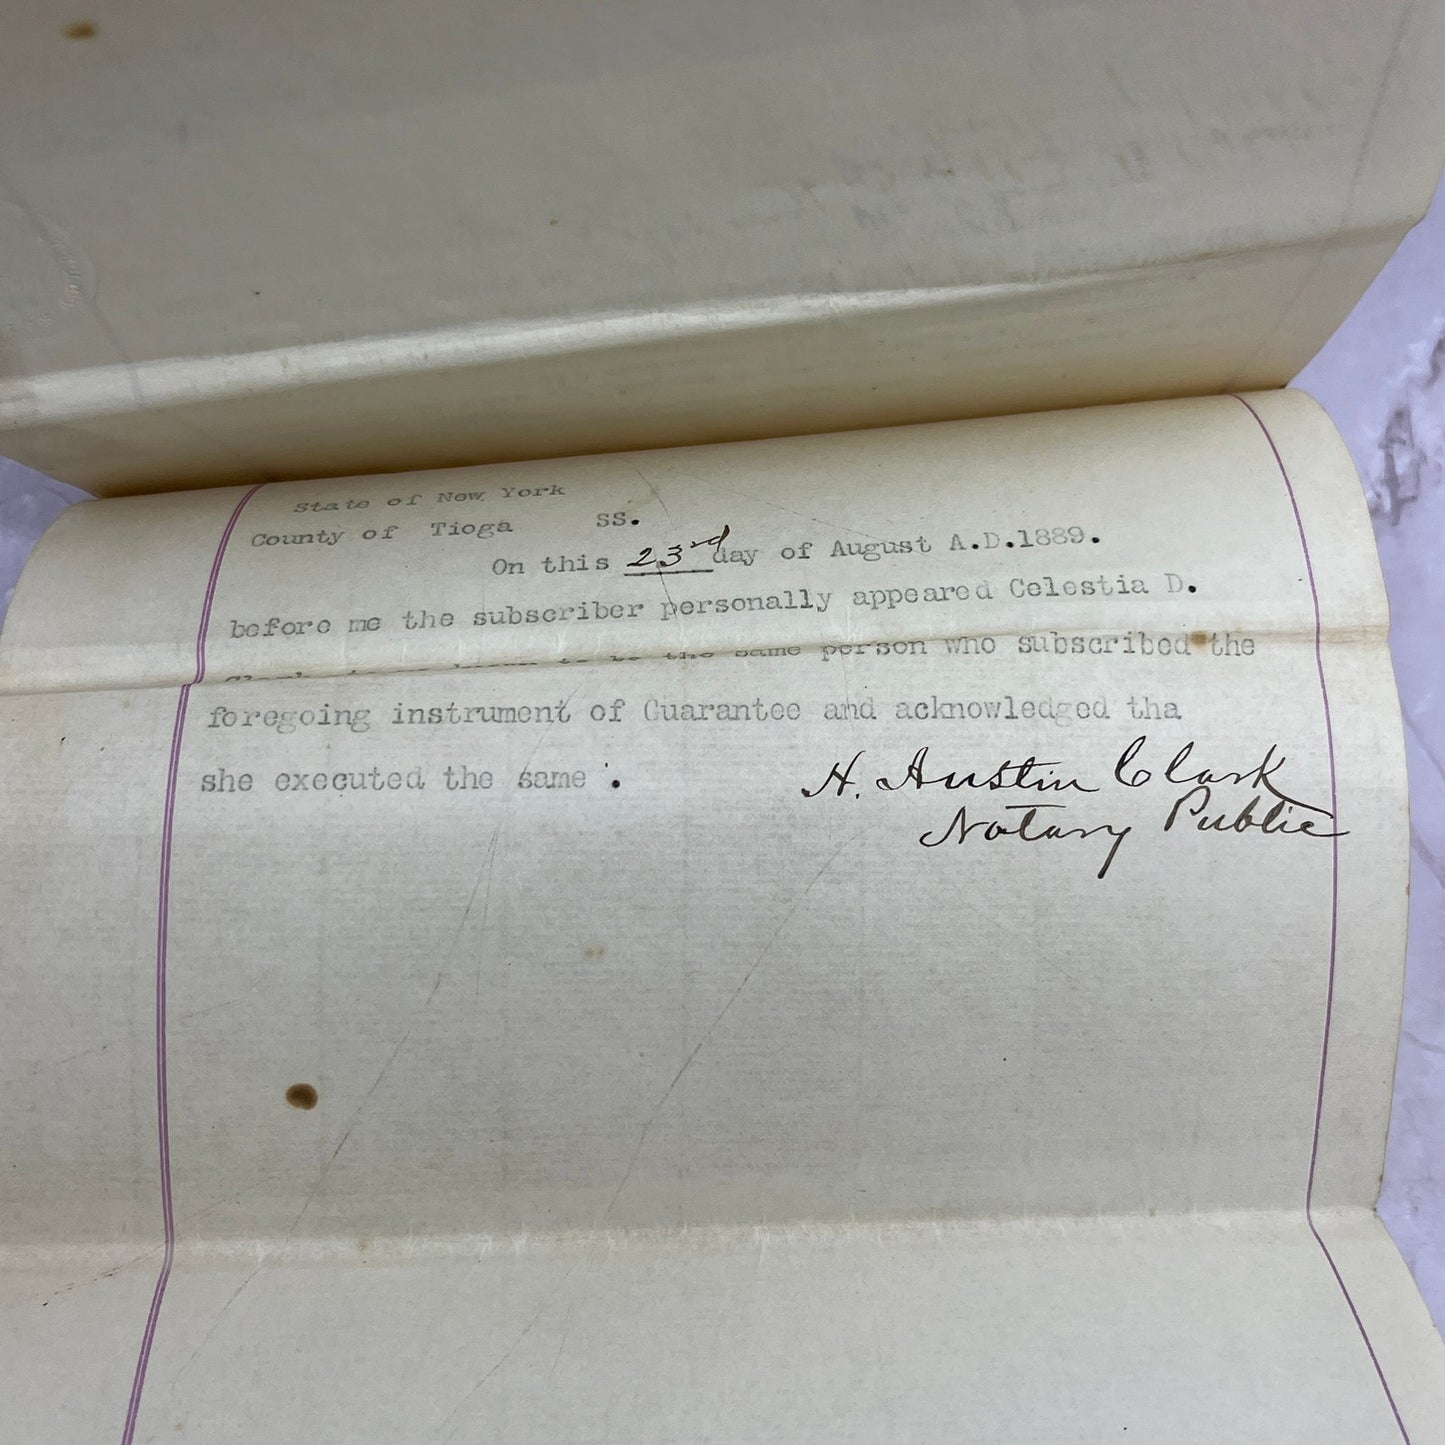 State of New York
County of Tioga SS.
On this 23rd day of August A.D.1889.
before me the subscriber personally appeared Celestia D.
to be the same person who subscribed the
foregoing instrument of Guarantee and acknowledged tha
she executed the same .
H. Austin Clark
Notary Public